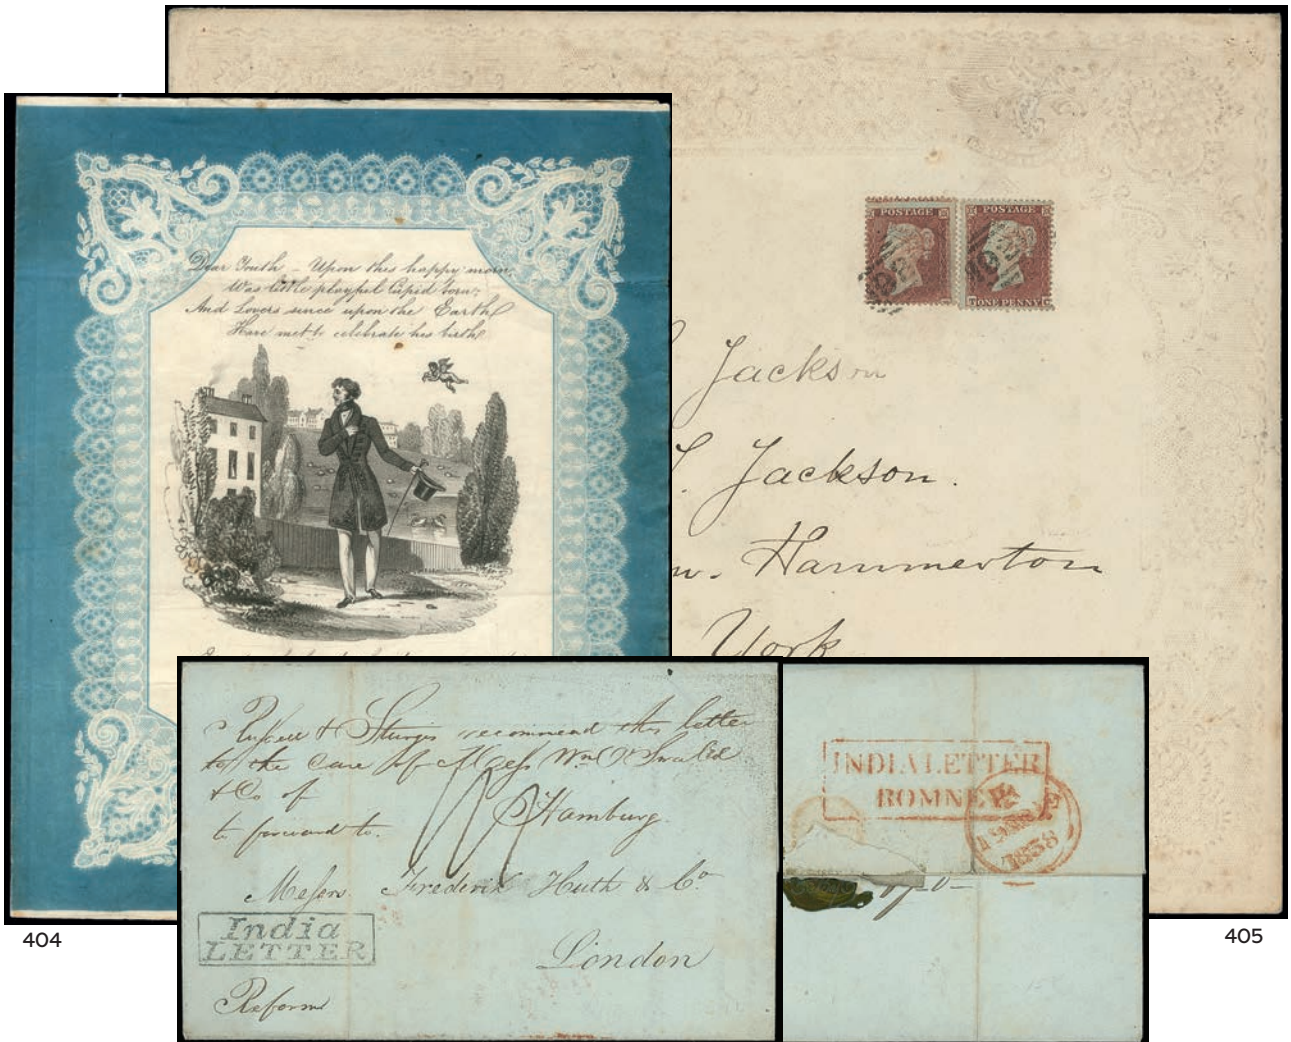 Dear Youth – Upon this happy morn,
Was little playful Cupid born;
And Lovers since upon the Earth
Have met to celebrate his birth
404
POSTAGE
POSTAGE
ONE PENNY
Jackson
Jackson.
Hammerton
York
405
& Sturgis recommend this letter
to the care of Messrs Wm O'Swald
& Co of
Hamburg
to forward to.
Messrs Frederik Huth & Co
India
LETTER
London
Reform
INDIA LETTER
ROMNEY
1838